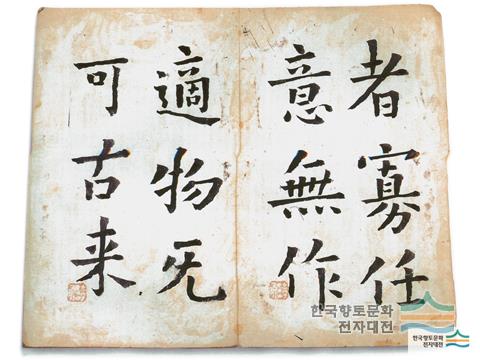 者寡任
意無作
適物旡
可古来
한국향토문화
전자대전
한국향토문화
전자대전